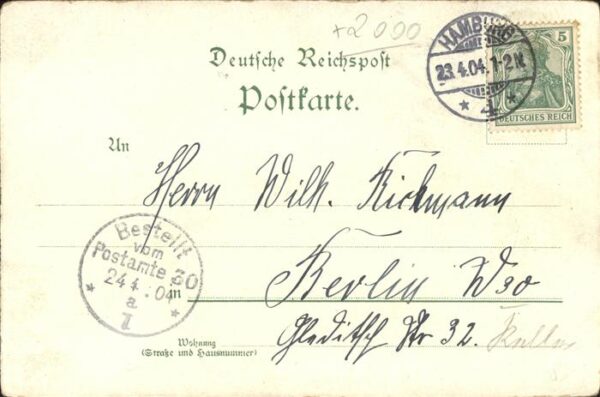 +2000
HAMBURG
23.4.04.1-2N.
* 4 *
5
DEUTSCHES REICH
Deutsche Reichspost
Postkarte.
An
Herrn Wilh. Richmann
Bestellt
vom
Postamte 30
24 4. 04
a
1
in
Berlin W30
Gleditsch Str 32.
Wohnung
(Straße und Hausnummer)